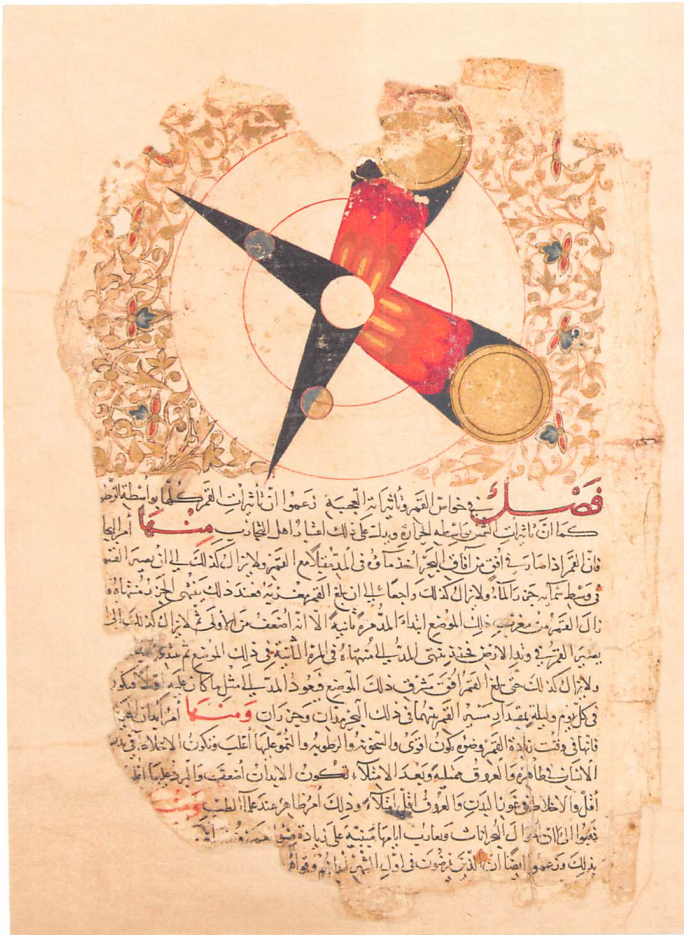 فصل في خواص القمر وتأثيراته العجيبة زعموا ان تأثيرات القمر كلها بواسطة الرطو
كما ان تاثيرات الشمس بواسطة الحرارة ويدل على ذلك اعتبار اهل التجارب منها امر البحا
فان القمر اذا صار في افق من آفاق البحر اخذ ماؤه في المد مقبلا مع القمر ولا يزال كذلك الى ان يصير القمر
في وسط سمائه جزر الماء ولا يزال كذلك راجعا الى ان بلغ القمر مغربه فعند ذلك ينتهي الجزر منتهاه
زال القمر من مغرب ذلك الموضع ابتداء المد مرة ثانية الا انه اضعف من الاولى ثم لا يزال كذلك الى
يصير القمر في وتد الارض فحينئذ ينتهي المد الى منتهاه في المرة الثانية في ذلك الموضع ثم يبتدي
ولا يزال كذلك حتى بلغ القمر افق مشرق ذلك الموضع فيعود المد الى مثل ما كان عليه اولا فيكون
في كل يوم وليلة بمقدار مسير القمر فيهما في ذلك البحر مدان وجزران ومنها امر ابدان الحيو
فانها في وقت زيادة القمر وضوئه تكون اقوى والسخونة والرطوبة والنمو عليها اغلب وتكون الاخلاط في بدن
الانسان ظاهرة والعروق ممتلية وبعد الامتلاء تكون الابدان اضعف والبرد عليها
اقل والاخلاط في غور البدن والعروق اقل امتلاء وذلك امر ظاهر عند علماء الطب ومنها
زعموا ان البحرانات وتعاريف ايامها مبنية على زيادة ضوء
بذلك وزعموا ايضا ان الذين يمرضون في اول الشهر ابدانهم وقواهم